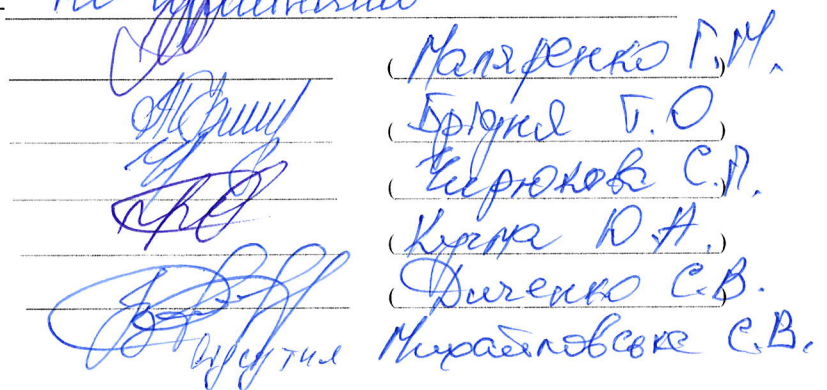 не
(Маляренко Г.М.)
(Брідня Т.О.)
(Бирюкова С.П.)
(Кучма Ю.А.)
(Диченко С.В.)
відсутня Михайловська Є.В.